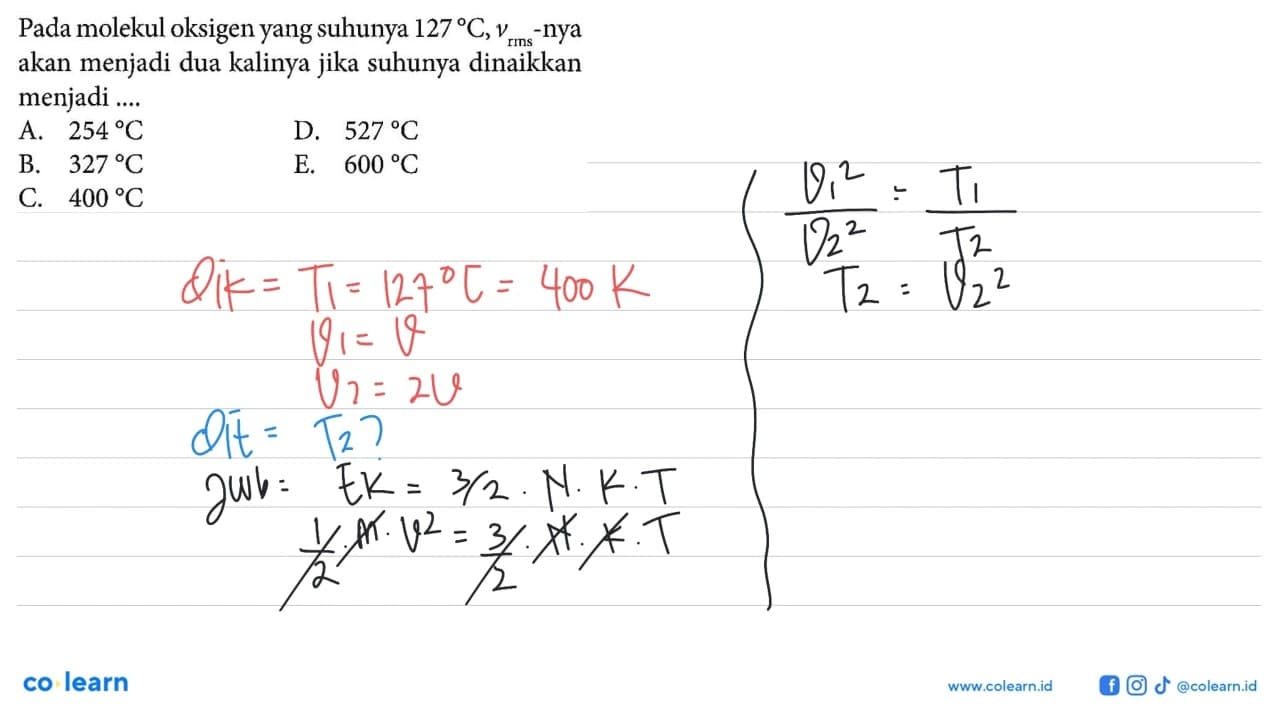 Pada molekul oksigen yang suhunya 127 °C, v rms -nya
akan menjadi dua kalinya jika suhunya dinaikkan
menjadi ....
A. 254 °C D. 527 °C
B. 327 °C E. 600 °C
C. 400 °C
Dik = T1 = 127°C = 400 K
v1 = v
v2 = 2v
Dit = T2?
Jwb = EK = 3/2 . N. K. T
1/2 . m. v² = 3/2 . N. K. T
v1²/v2² = T1/T2
T2 = v2²
co learn
www.colearn.id @colearn.id